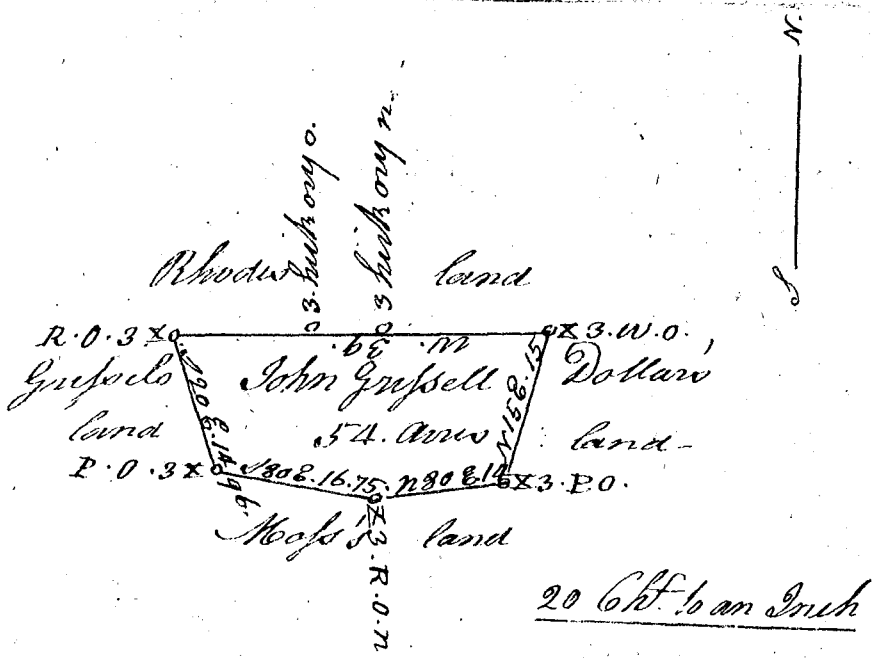 N.
S
3 hickory o.
3 hickory n.
Rhodes land
R.O.3X
X3.W.O.
W. 39.
Grissels land
S20E.14.96.
John Grissell
54. Acres
N15E.15
Dollars land
P.O.3X
S80E.16.75.
N80E14
X3.P.O.
Moss's land
X3.R.O.n
20 Chs. to an Inch